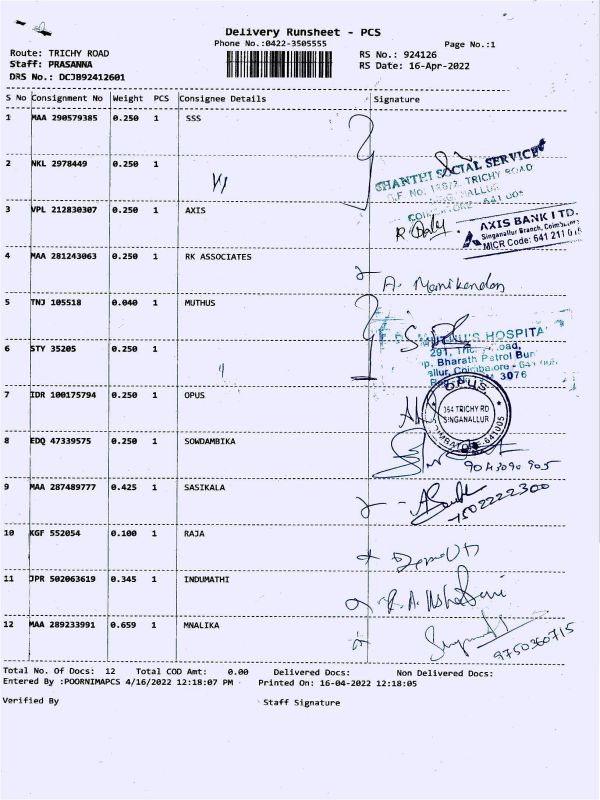 Delivery Runsheet - PCS
Phone No.:0422-3505555
Page No.:1
Route: TRICHY ROAD
Staff: PRASANNA
DRS No.: DCJB92412601
RS No.: 924126
RS Date: 16-Apr-2022
S No Consignment No Weight PCS Consignee Details Signature
1 MAA 290579385 0.250 1 SSS
2 NKL 2978449 0.250 1
SHANTHI SOCIAL SERVICE
TRICHY ROAD
3 VPL 212830307 0.250 1 AXIS
AXIS BANK LTD.
Singanallur Branch, Coimbatore
MICR Code: 641 211
4 MAA 281243063 0.250 1 RK ASSOCIATES
A. Manikandan
5 TNJ 105518 0.040 1 MUTHUS
HOSPITA
291,
6 STY 35205 0.250 1
Bharath Petrol Bun
Coimbatore
3076
7 IDR 100175794 0.250 1 OPUS
OPUS
354 TRICHY RD
SINGANALLUR
COIMBATORE-641005
8 EDQ 47339575 0.250 1 SOWDAMBIKA
9043090905
9 MAA 287489777 0.425 1 SASIKALA
7502222300
10 KGF 552054 0.100 1 RAJA
11 JPR 502063619 0.345 1 INDUMATHI
12 MAA 289233991 0.659 1 MNALIKA
9750360715
Total No. Of Docs: 12 Total COD Amt: 0.00 Delivered Docs: Non Delivered Docs:
Entered By :POORNIMAPCS 4/16/2022 12:18:07 PM Printed On: 16-04-2022 12:18:05
Verified By Staff Signature